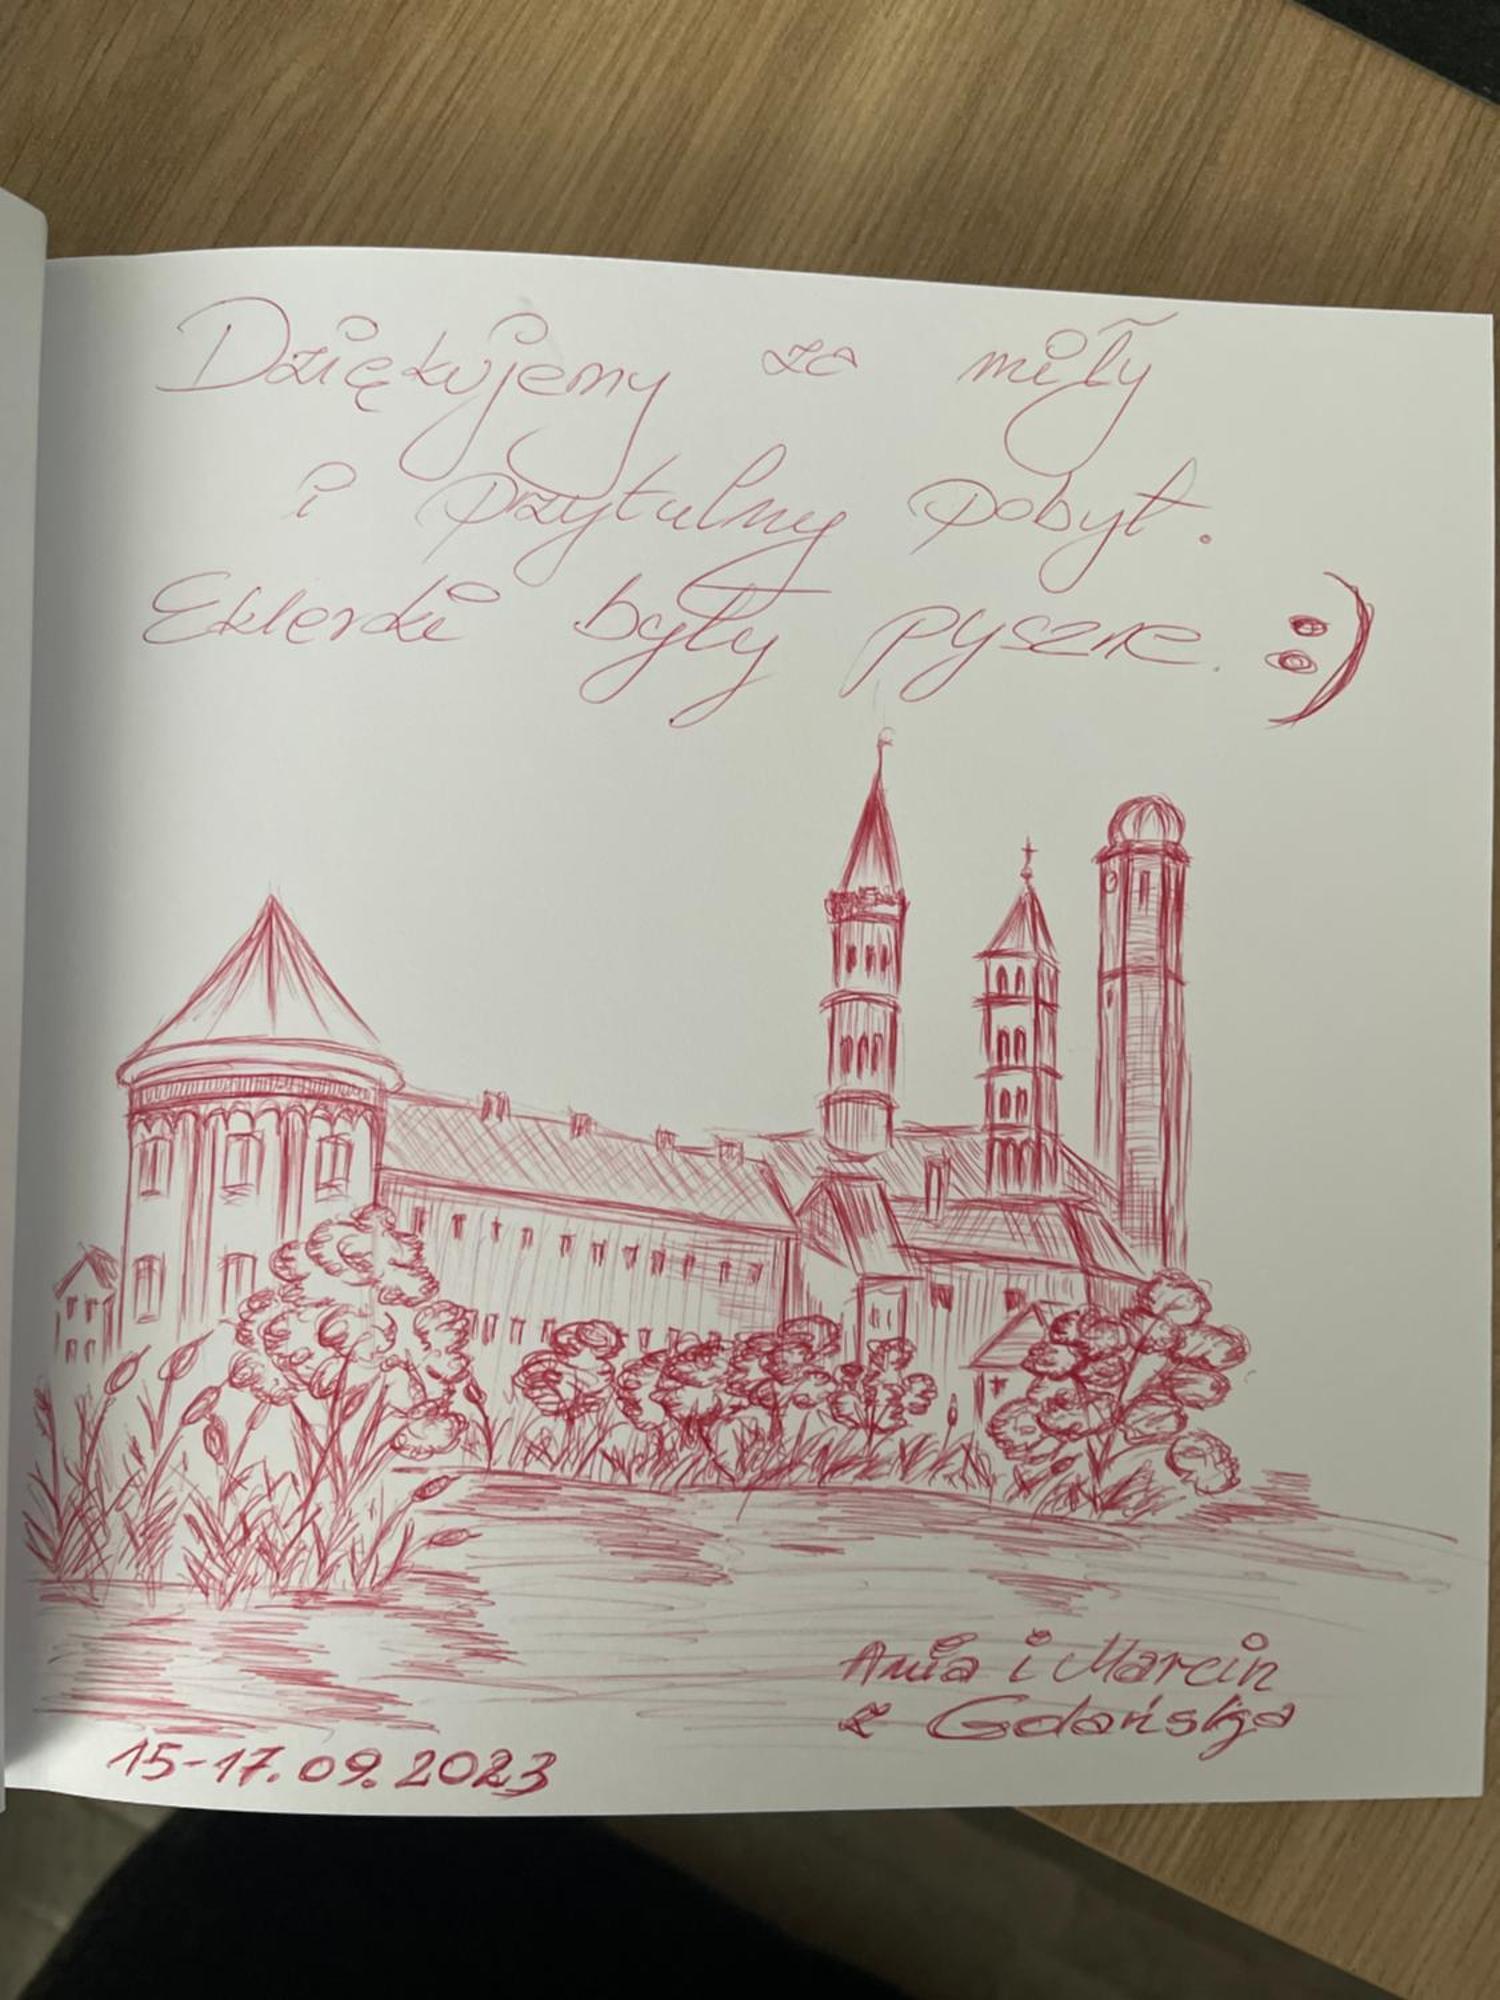 Dziękujemy za miły
i przytulny pobyt.
Eklerki były pyszne. :)
Ania i Marcin
z Gdańska
15-17.09.2023